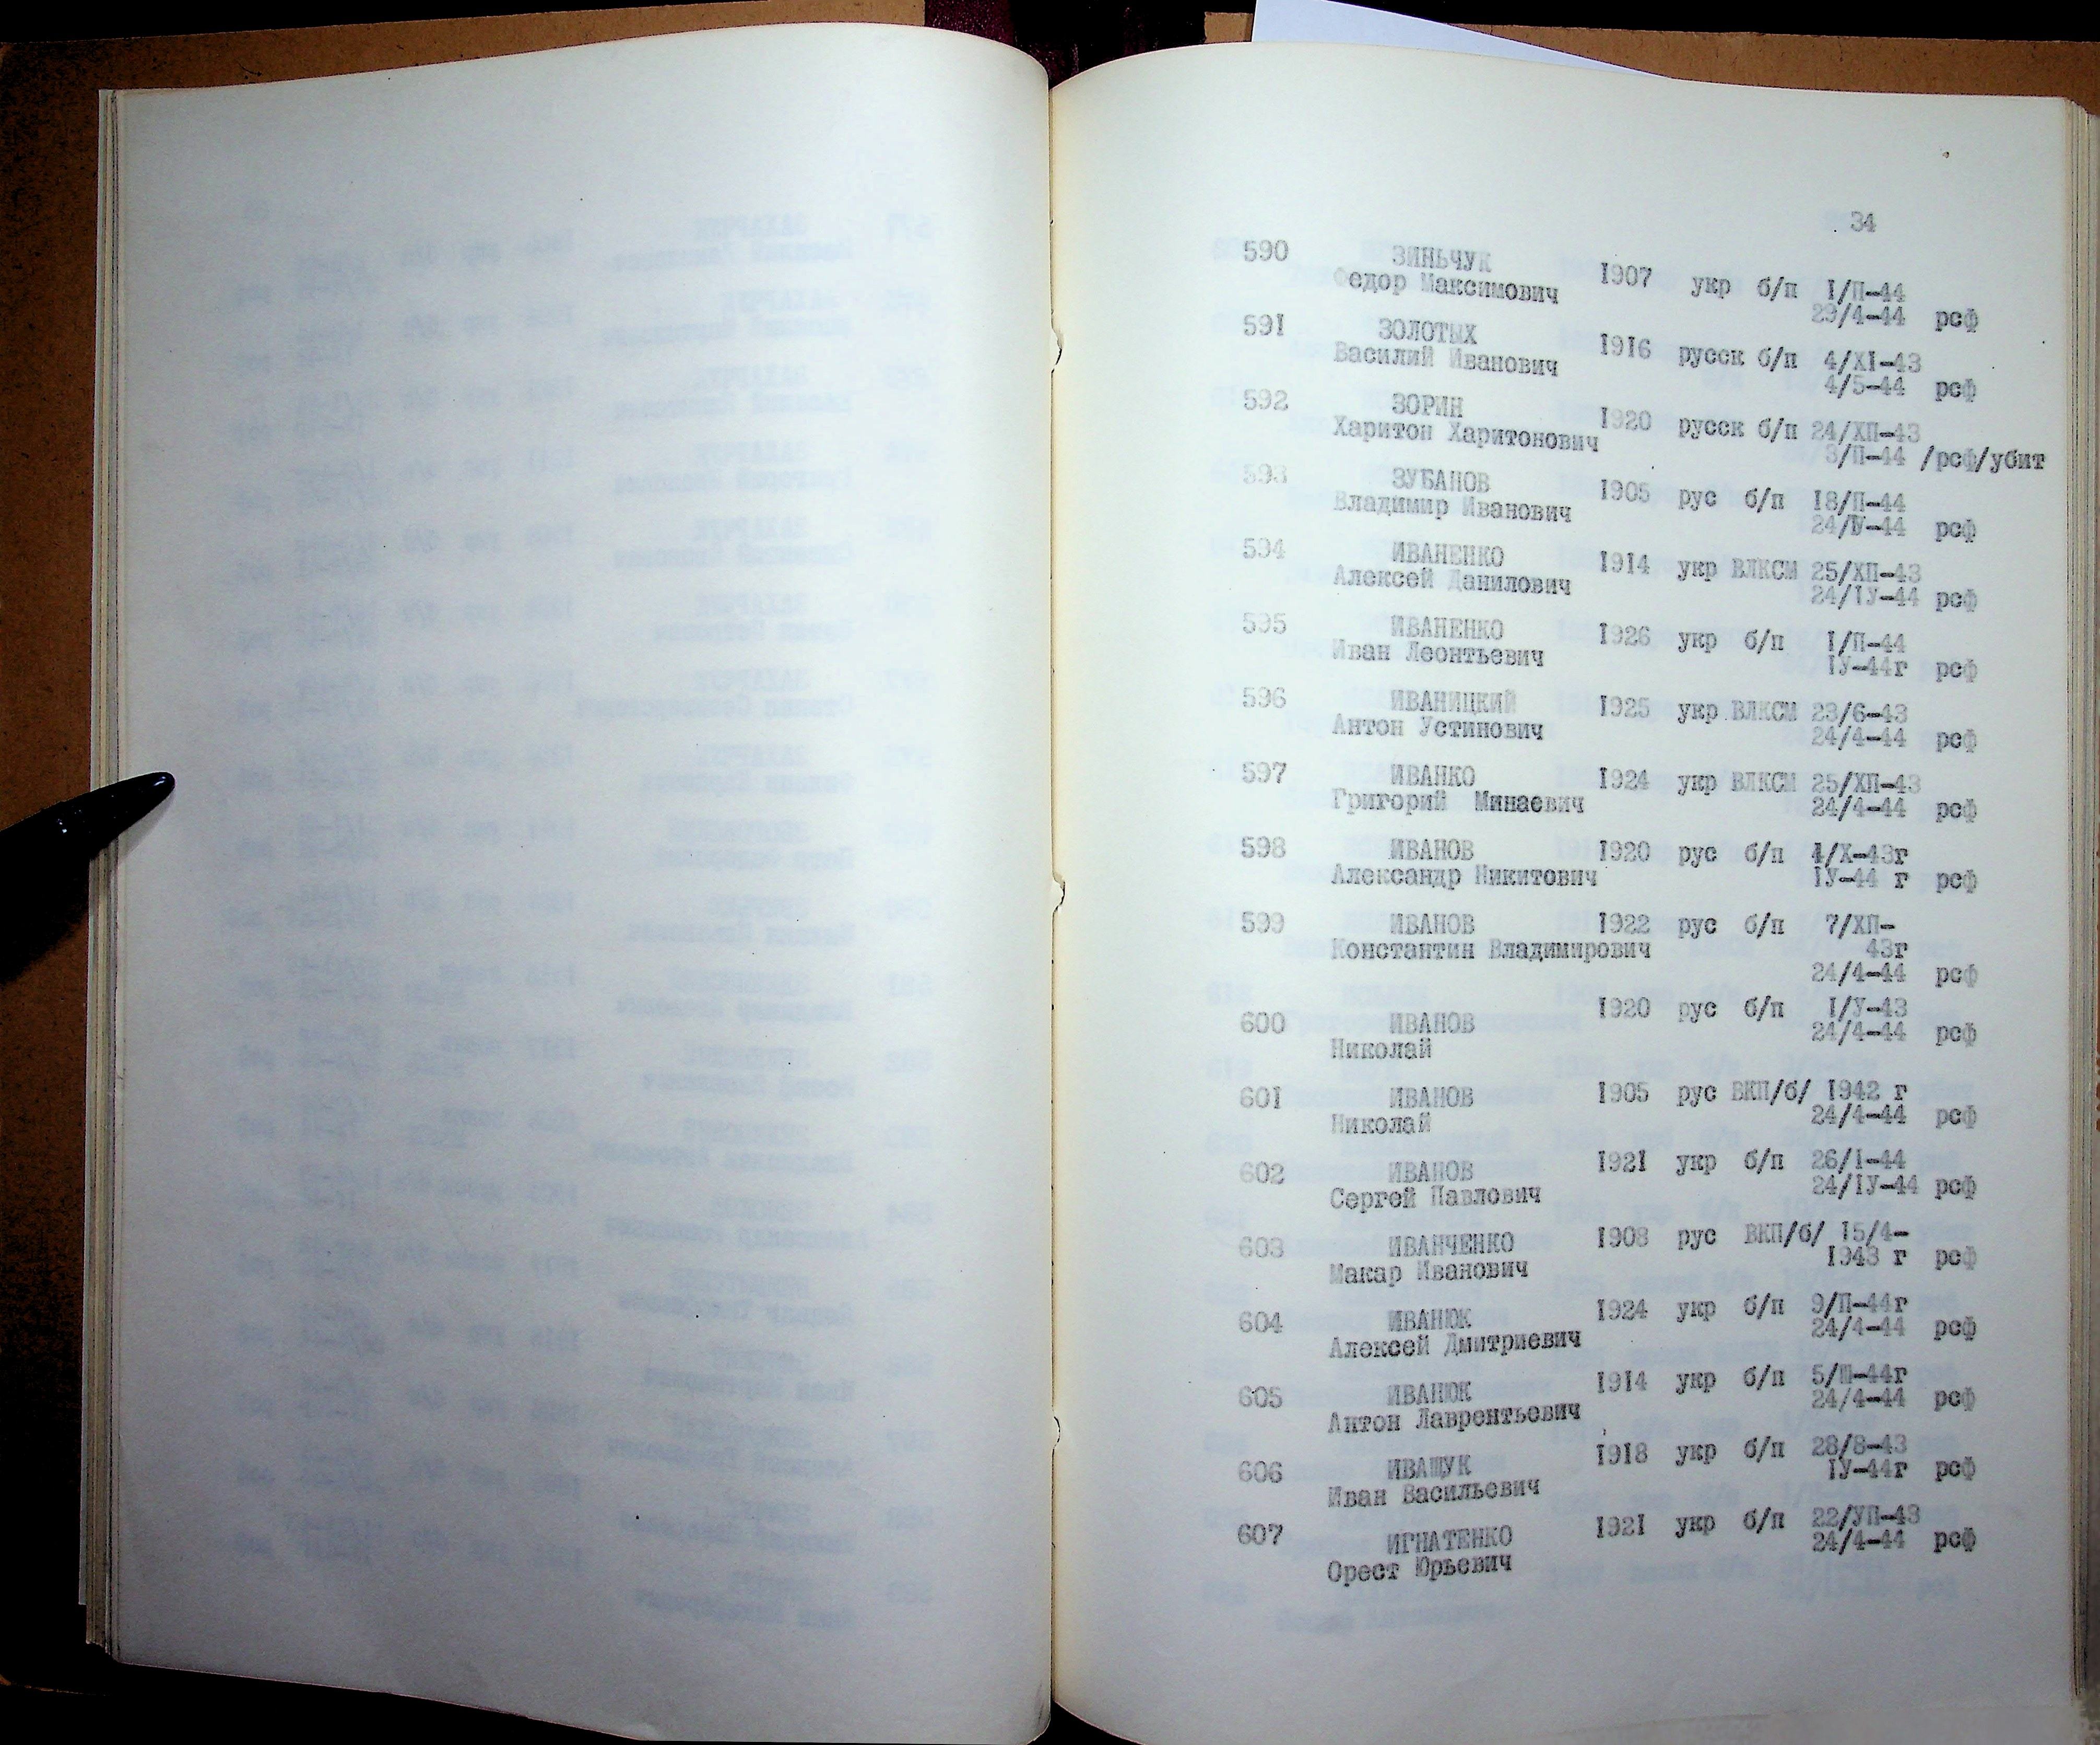 34
590 ЗИНЬЧУК 1907 укр б/п 1/П-44
Федор Максимович 29/4-44 рсф
591 ЗОЛОТЫХ 1916 русск б/п 4/XI-43
Василий Иванович 4/5-44 рсф
592 ЗОРИН 1920 русск б/п 24/ХП-43
Харитон Харитонович 3/П-44 /рсф/убит
593 ЗУБАНОВ 1905 рус б/п 18/П-44
Владимир Иванович 24/IУ-44 рсф
594 ИВАНЕНКО 1914 укр ВЛКСМ 25/ХП-43
Алексей Данилович 24/IУ-44 рсф
595 ИВАНЕНКО 1926 укр б/п 1/П-44
Иван Леонтьевич IУ-44г рсф
596 ИВАНИЦКИЙ 1925 укр ВЛКСМ 23/6-43
Антон Устинович 24/4-44 рсф
597 ИВАНКО 1924 укр ВЛКСМ 25/ХП-43
Григорий Минаевич 24/4-44 рсф
598 ИВАНОВ 1920 рус б/п 4/Х-43г
Александр Никитович IУ-44 г рсф
599 ИВАНОВ 1922 рус б/п 7/ХП-
Константин Владимирович 43г
24/4-44 рсф
600 ИВАНОВ 1920 рус б/п 1/У-43
Николай 24/4-44 рсф
601 ИВАНОВ 1905 рус ВКП/б/ 1942 г
Николай 24/4-44 рсф
602 ИВАНОВ 1921 укр б/п 26/I-44
Сергей Павлович 24/IУ-44 рсф
603 ИВАНЧЕНКО 1908 рус ВКП/б/ 15/4-
Макар Иванович 1943 г рсф
604 ИВАНЮК 1924 укр б/п 9/П-44г
Алексей Дмитриевич 24/4-44 рсф
605 ИВАНЮК 1914 укр б/п 5/Ш-44г
Антон Лаврентьевич 24/4-44 рсф
606 ИВАЩУК 1918 укр б/п 28/8-43
Иван Васильевич IУ-44г рсф
607 ИГНАТЕНКО 1921 укр б/п 22/УП-43
Орест Юрьевич 24/4-44 рсф